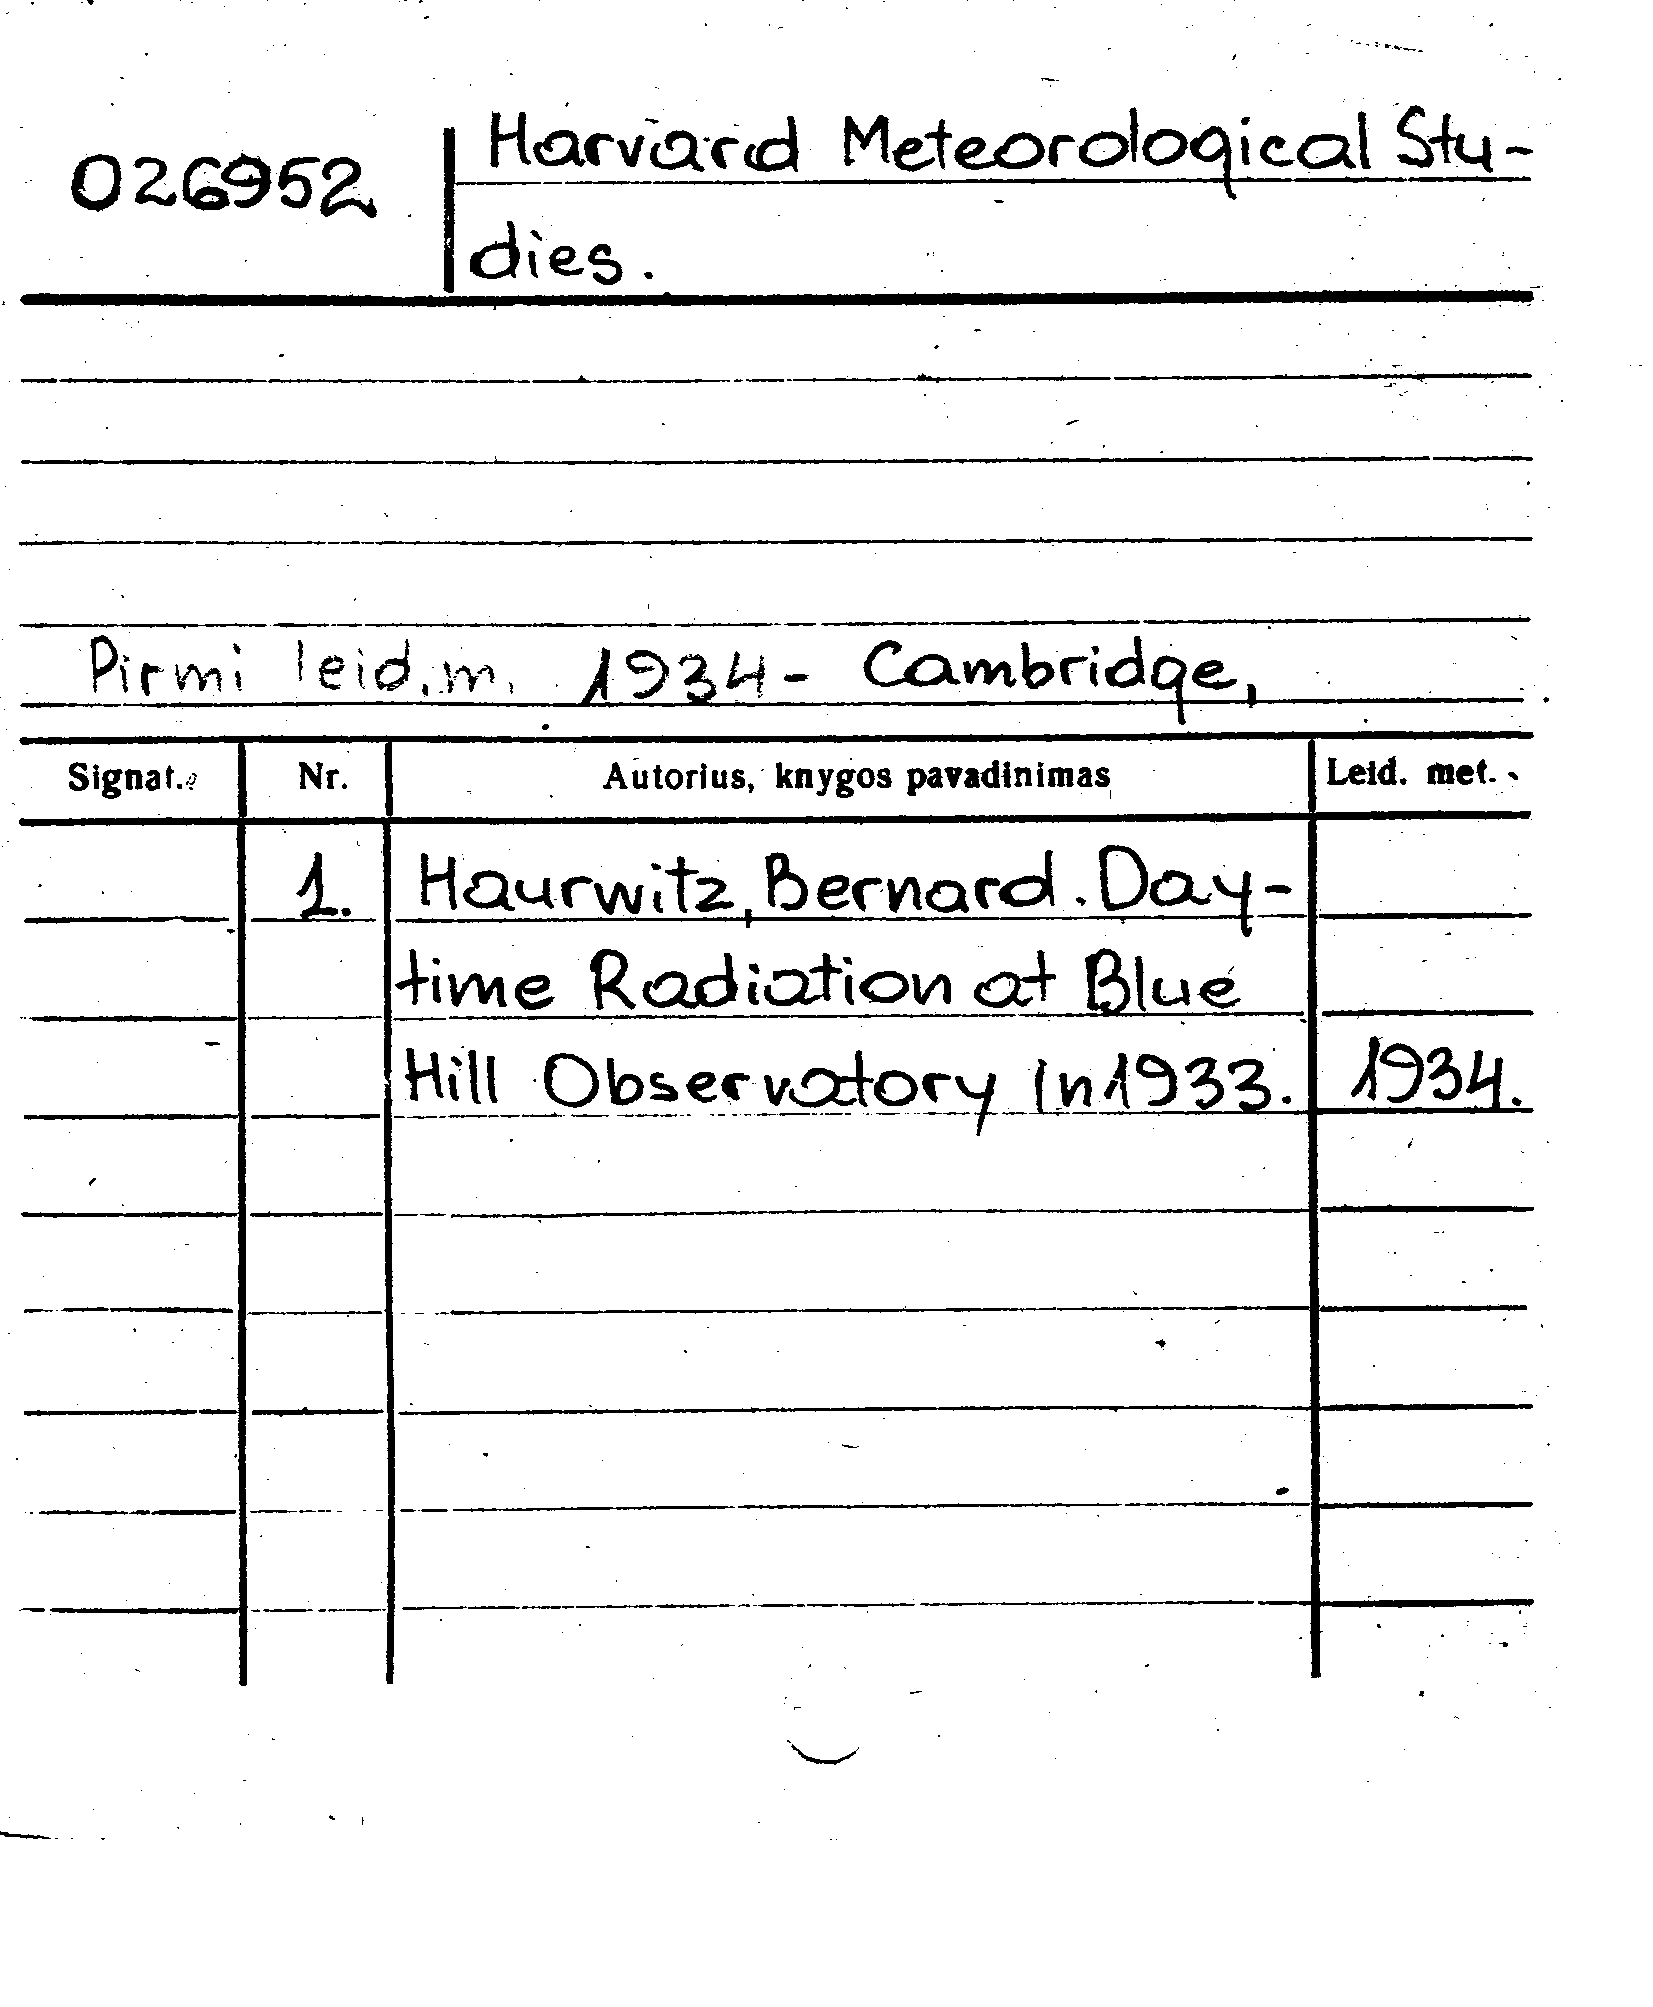 026952
Harvard Meteorological Stu-
dies.
Pirmi leid. m. 1934- Cambridge,
Signat. Nr. Autorius, knygos pavadinimas Leid. met.
1. Haurwitz, Bernard. Day-
time Radiation at Blue
Hill Observatory In 1933. 1934.